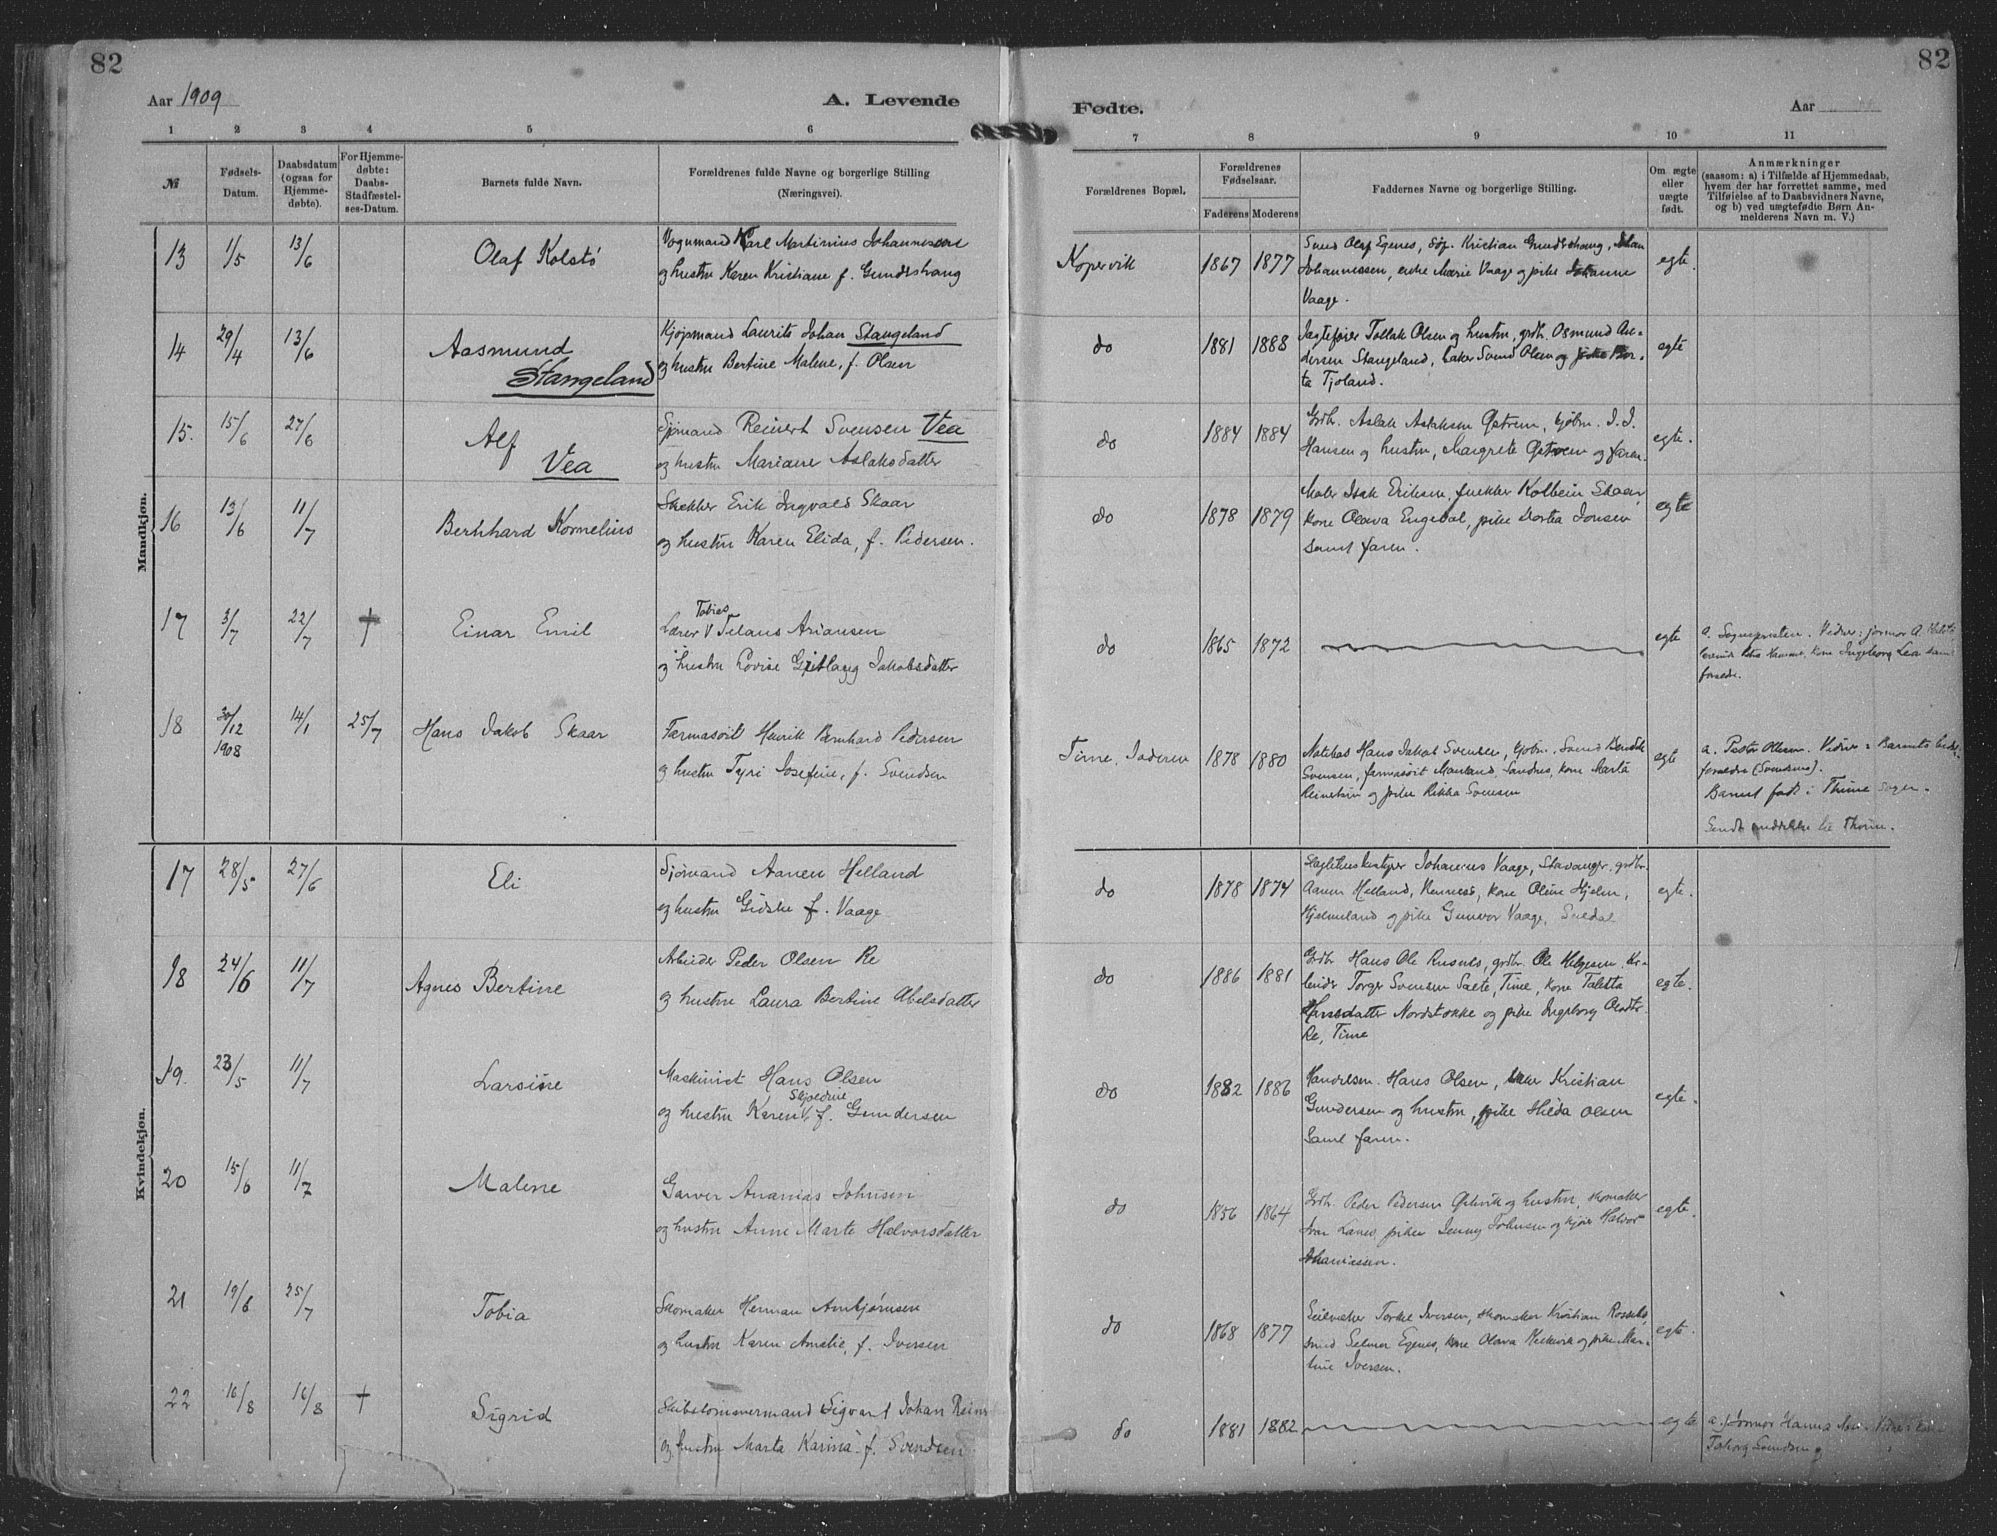 82
82
Aar 1909
A. Levende
Fødte.
Aar
1 2 3 4 5 6 7 8 9 10 11
№
Fødsels-
Datum.
Daabsdatum
(ogsaa for
Hjemme-
døbte).
For Hjemme-
døbte:
Daabs-
Stadfæstel-
ses-Datum.
Barnets fulde Navn.
Forældrenes fulde Navne og borgerlige Stilling
(Næringsvei).
Forældrenes Bopæl.
Forældrenes
Fødselsaar.
Faderens Moderens
Faddernes Navne og borgerlige Stilling.
Om ægte
eller
uægte
født.
Anmærkninger
(saasom: a) i Tilfælde af Hjemmedaab,
hvem der har forrettet samme, med
Tilføielse af to Daabsvidners Navne,
og b) ved uægtefødte Børn An-
melderens Navn m. V.)
Mandkjøn.
13 1/5 13/6 Olaf Kolstø
Vognmand Karl Martinius Johannessen
og hustru Karen Kristiane f. Gundershaug
Kopervik 1867 1877
Smed Olaf Egenes, Kristian
Johannessen, enke Marie Vaage og pike Johanne
Vaage.
egte.
14 29/4 13/6 Aasmund
Stangeland
Kjøpmand Laurits Johan Stangeland
og hustru Bertine Malene, f. Olsen
do 1881 1888
Jagtefører Tollak Olsen og hustru, grdb. Osmund An-
dersen Stangeland, Svend Olsen og pike Ber-
ta Tjoland.
egte
15. 15/6 27/6 Alf
Vea
Sjømand Reinert Svensen Vea
og hustru Mariane Aslaksdatter
do 1884 1884
Grdb. Aslak Aslaksen Østrem, I. I.
Hansen og hustru, Margrete Østrem og faren.
egte.
16 13/6 11/7 Bernhard Kornelius
Snekker Erik Ingvald Skaar
og hustru Karen Elida, f. Pedersen.
do 1878 1879
Maler Isak Eriksen, snekker Kolbein Skaar,
kone Olava Engedal, pike Dortea Jonsen
samt faren.
egte
17 3/7 22/7 † Einar Emil
Tobias
Lærer V Telans Ariansen
og hustru Lovise Jakobsdatter
do 1865 1872
egte
a. Sognepresten. Vidner: jormor A.
kone Ingeborg Lea samt
forældre.
18 30/12 14/1 25/7 Hans Jakob Skaar
1908
Farmasøit Henrik Bernhard Pedersen
og hustru Tyri Josefine, f. Svendsen
Time, Jæderen 1878 1880
Hans Jakob Svensen, kjøbm. Svend
Svensen, farmasøit Mauland, Sandnes, kone Marta
og pike Rikka Svensen
egte
a. Pastor Olsen. Vidner: Barnets
forældre (Svendsens).
Barnet født i Thime sogn.
Sendt meddelelse til Thime.
Kvindekjøn.
17 28/5 27/6 Eli
Sjømand Aanen Helland
og hustru Gidske f. Vaage
do 1878 1874
Johannes Vaage, Stavanger, grdbr.
Aanen Helland, Rennesø, kone Oline Hjelm,
Hjelmeland og pike Gunvor Vaage, Suldal
egte.
18 24/6 11/7 Agnes Bertine
Arbeider Peder Olsen Re
og hustru Laura Bertine Abelsdatter
do 1886 1881
Grdbr. Hans Ole Rusnes, grdbr. Ole Helgesen, Ar-
beider Torger Svensen Saete, Time, kone Taletta
Hansdatter Nordstokke og pike Ingeborg Olsdtr
Re, Time
egte.
19. 23/5 11/7 Larsine
Maskinist Hans Olsen
og hustru Karen f. Gundersen
do 1882 1886
Handelsm. Hans Olsen, Kristian
Gundersen og hustru, pike Hilda Olsen
samt faren.
egte.
20 15/6 11/7 Malene
Garver Ananias Johnsen
og hustru Anne Marte Halvorsdatter
do 1856 1864
Grdb. Peder Pedersen og hustru, skomaker
Ivar Lanes, pike Jenny Johnsen og Halvor
Johannessen.
egte.
21 19/6 25/7 Tobia
Skomaker Herman Arnbjørnsen
og hustru Karen Amalie, f. Iversen
do 1868 1877
Seilmaker Torkel Iversen, skomaker Kristian
smed Selmer Egenes, kone Olava og pike Mar-
tine Iversen.
egte.
22 16/8 16/8 † Sigrid
Skibstømmermand Sigvart Johan
og hustru Marta Karina f. Svendsen
do 1881 1882
egte
a. Jormor Hanna
Svendsen